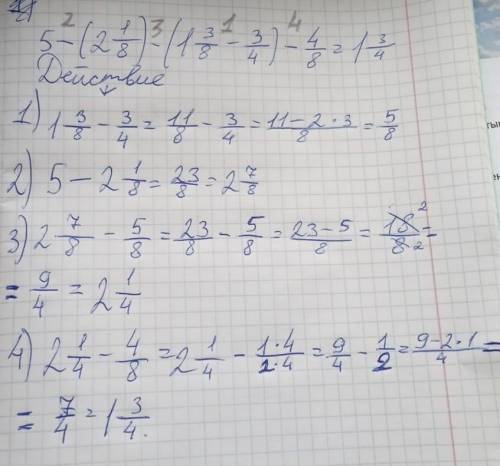 2 3 1 4
5 - (2 1/8) - (1 3/8 - 3/4) - 4/8 = 1 3/4
Действие
1) 1 3/8 - 3/4 = 11/8 - 3/4 = (11 - 2 · 3)/8 = 5/8
2) 5 - 2 1/8 = 23/8 = 2 7/8
3) 2 7/8 - 5/8 = 23/8 - 5/8 = (23 - 5)/8 = 18 2/8 2 =
= 9/4 = 2 1/4
4) 2 1/4 - 4/8 = 2 1/4 - (1 · 4)/(2 · 4) = 9/4 - 1/2 = (9 - 2 · 1)/4 =
= 7/4 = 1 3/4.